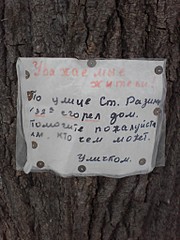 Уважаемые
жители!
По улице Ст. Разина
сгорел дом.
Помогите пожалуйста
кто чем может.
Уличком.